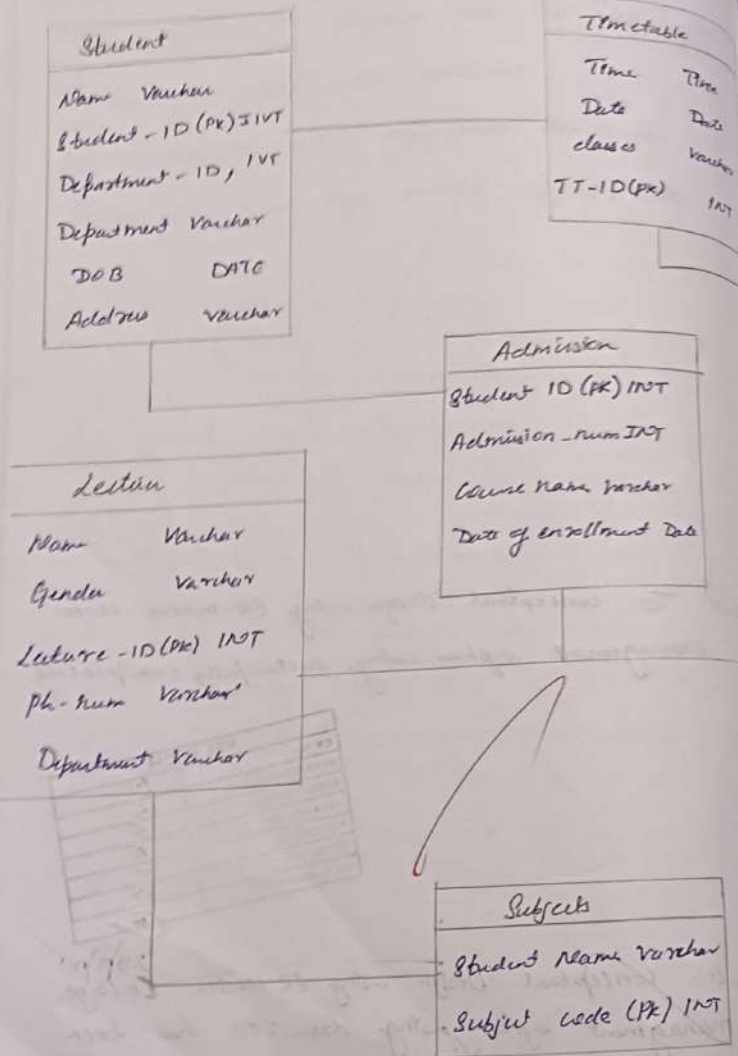 Student
Name Varchar
Student-ID (PK) INT
Department-ID, INT
Department Varchar
DOB DATE
Address varchar
Timetable
Time Time
Date Date
classes varchar
TT-ID(PK) INT
Admission
Student ID (PK) INT
Admission_num INT
Course name varchar
Date of enrollment Date
Lecture
Name Varchar
Gender Varchar
Lecture-ID(PK) INT
Ph-num Varchar
Department Varchar
Subjects
Student Name varchar
Subject code (PK) INT